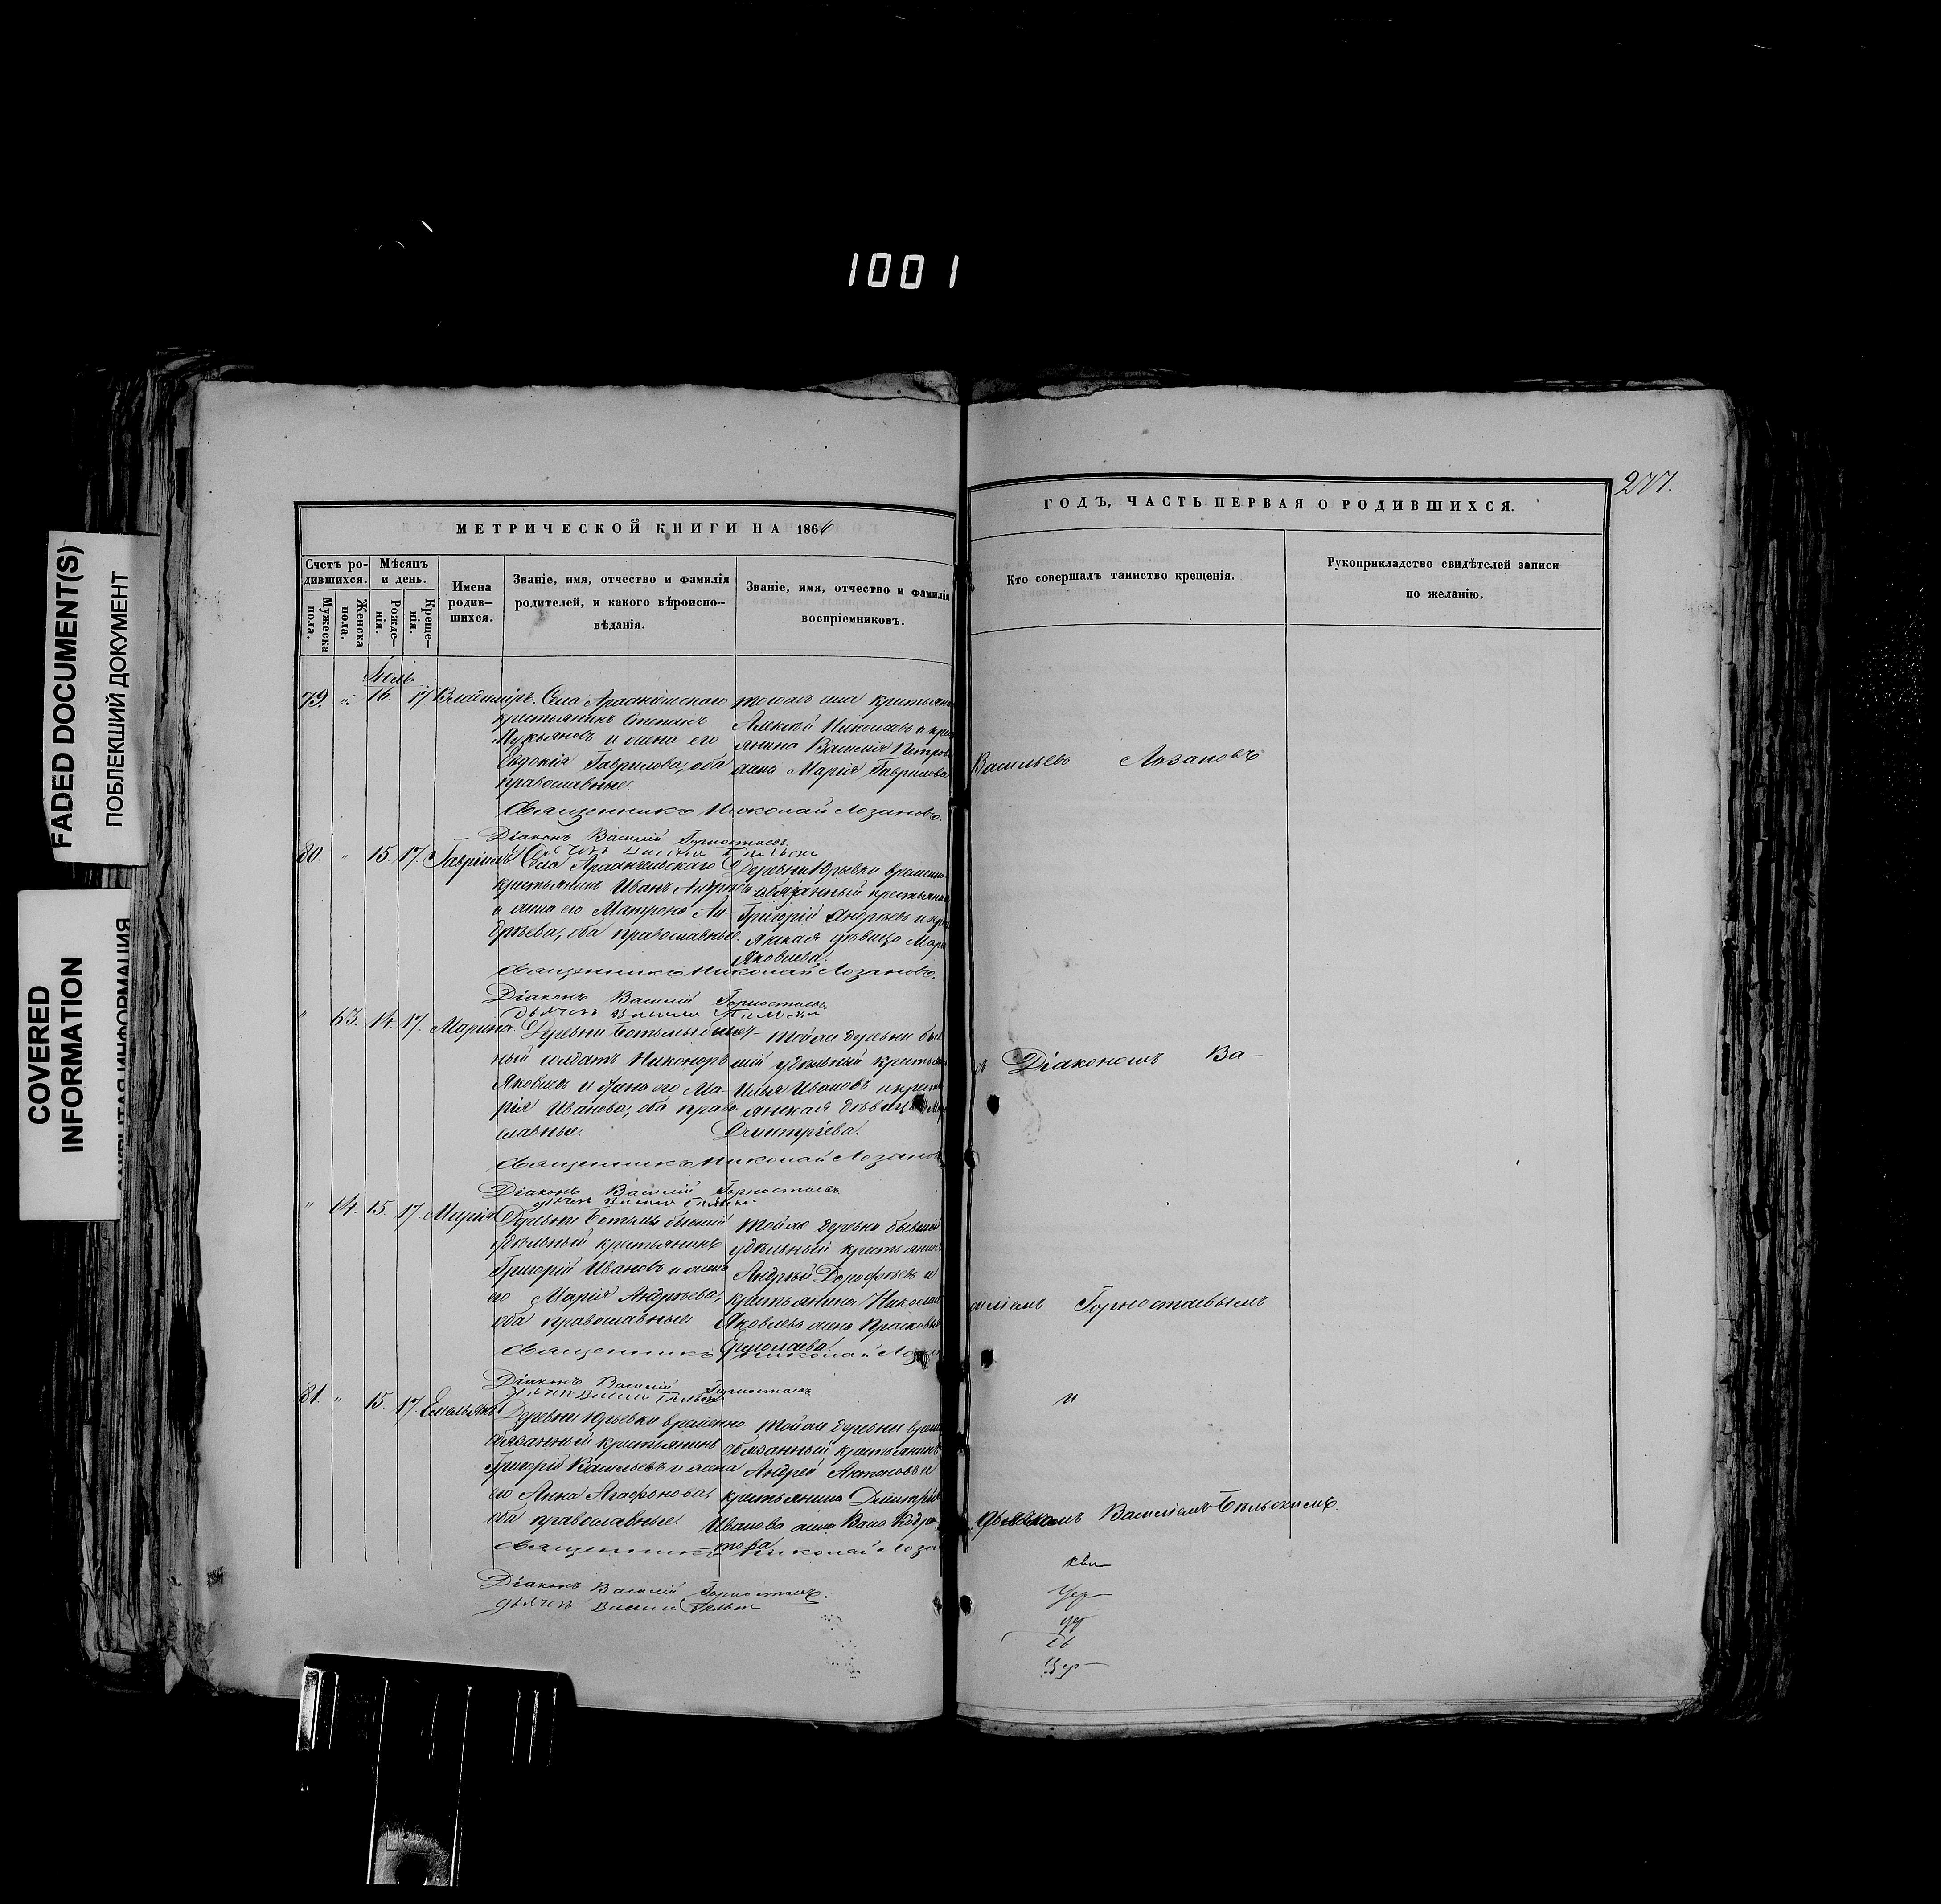 1001
FADED DOCUMENT(S)
ПОБЛЕКШИЙ ДОКУМЕНТ
COVERED
INFORMATION
277.
МЕТРИЧЕСКОЙ КНИГИ НА 1866
ГОДЪ, ЧАСТЬ ПЕРВАЯ О РОДИВШИХСЯ.
Счетъ ро-
дившихся.
Мужеска
пола.
Женска
пола.
Мѣсяцъ
и день.
Рожде-
нія.
Креще-
нія.
Имена
родив-
шихся.
Званіе, имя, отчество и фамилія
родителей, и какого вѣроиспо-
вѣданія.
Званіе, имя, отчество и фамилія
воспріемниковъ.
Кто совершалъ таинство крещенія.
Рукоприкладство свидѣтелей записи
по желанію.
Іюль
79. " 16. 17. Владиміръ.
Села Архангельскаго
крестьянинъ Степанъ
Лукьяновъ и жена его
Евдокія Гаврилова, оба
православные.
тогожъ села крестьян
Алексѣй Николаевъ и крес
янина Василія Петрова
жена Марія Гаврилова
Священникъ Николай Лозановъ.
Діаконъ Василій Горностаевъ
80. " 15. 17. Гавріилъ.
Села Архангельскаго
крестьянинъ Иванъ Андреевъ
и жена его Матрона Ан-
дреева, оба православные.
Деревни Юрьевки временно
обязанный крестьянин
Григорій Андреевъ и крес
янская дѣвица Мар
Яковлева.
Священникъ Николай Лозановъ.
Діаконъ Василій Горностаевъ
" 63. 14. 17. Марина.
ный солдатъ Никоноръ
Яковлевъ и жена его Ма-
рія Иванова, оба право-
славные.
Тойже деревни быв
шій удѣльный крестьян
Илья Ивановъ и крест
янская дѣвица Мар
Дмитріева.
Священникъ Николай Лозанов
Діаконъ Василій Горностаевъ
" 64. 15. 17. Марія
Деревни Ботьмы бывшій
удѣльный крестьянинъ
Григорій Ивановъ и жена
его Марія Андреева,
оба православные
Тойже деревни бывшій
удѣльный крестьянинъ
Андрей Дорофѣевъ и
крестьянина Николая
Яковлева жена Прасковья
Священникъ Николай Лозан
Діаконъ Василій Горностаевъ
81. " 15. 17. Емельянъ
Деревни Юрьевки временно-
обязанный крестьянинъ
Григорій Васильевъ и жена
его Анна Агафонова,
оба православные.
Тойже деревни врем
обязанный крестьянинъ
Андрей Антоновъ и
крестьянина Дмитрія
Иванова жена
Священникъ Николай Лоза
Діаконъ Василій Горностаевъ.
Васильевъ Лозановъ
Діакономъ Ва-
силіемъ Горностаевымъ
и
Дьячкомъ Василіемъ Бѣльскимъ.